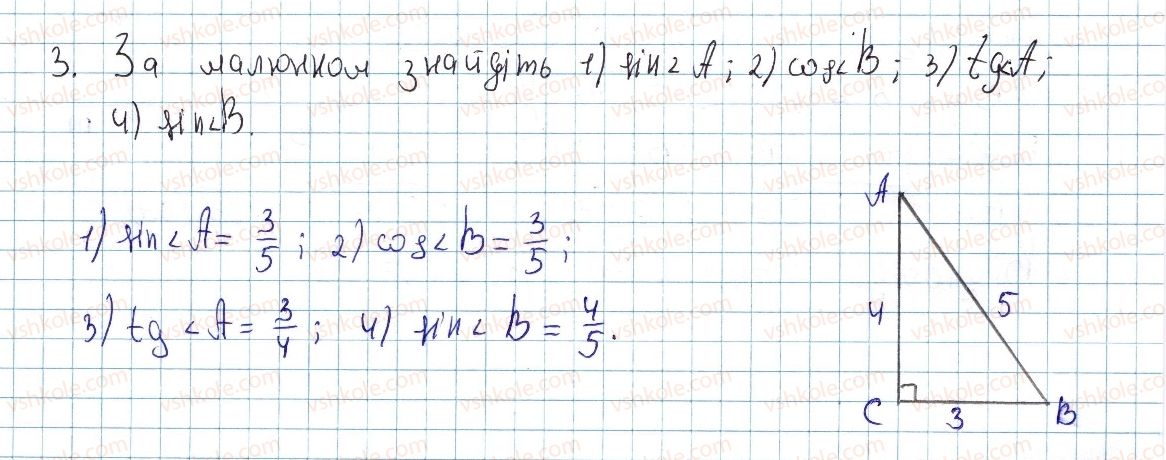 3. За малюнком знайдіть 1) sin<A; 2) cos<B; 3) tg<A;
4) sin<B.
1) sin<A = 3/5; 2) cos<B = 3/5;
3) tg<A = 3/4; 4) sin<B = 4/5.
A
4
5
C
3
B
vshkole.com